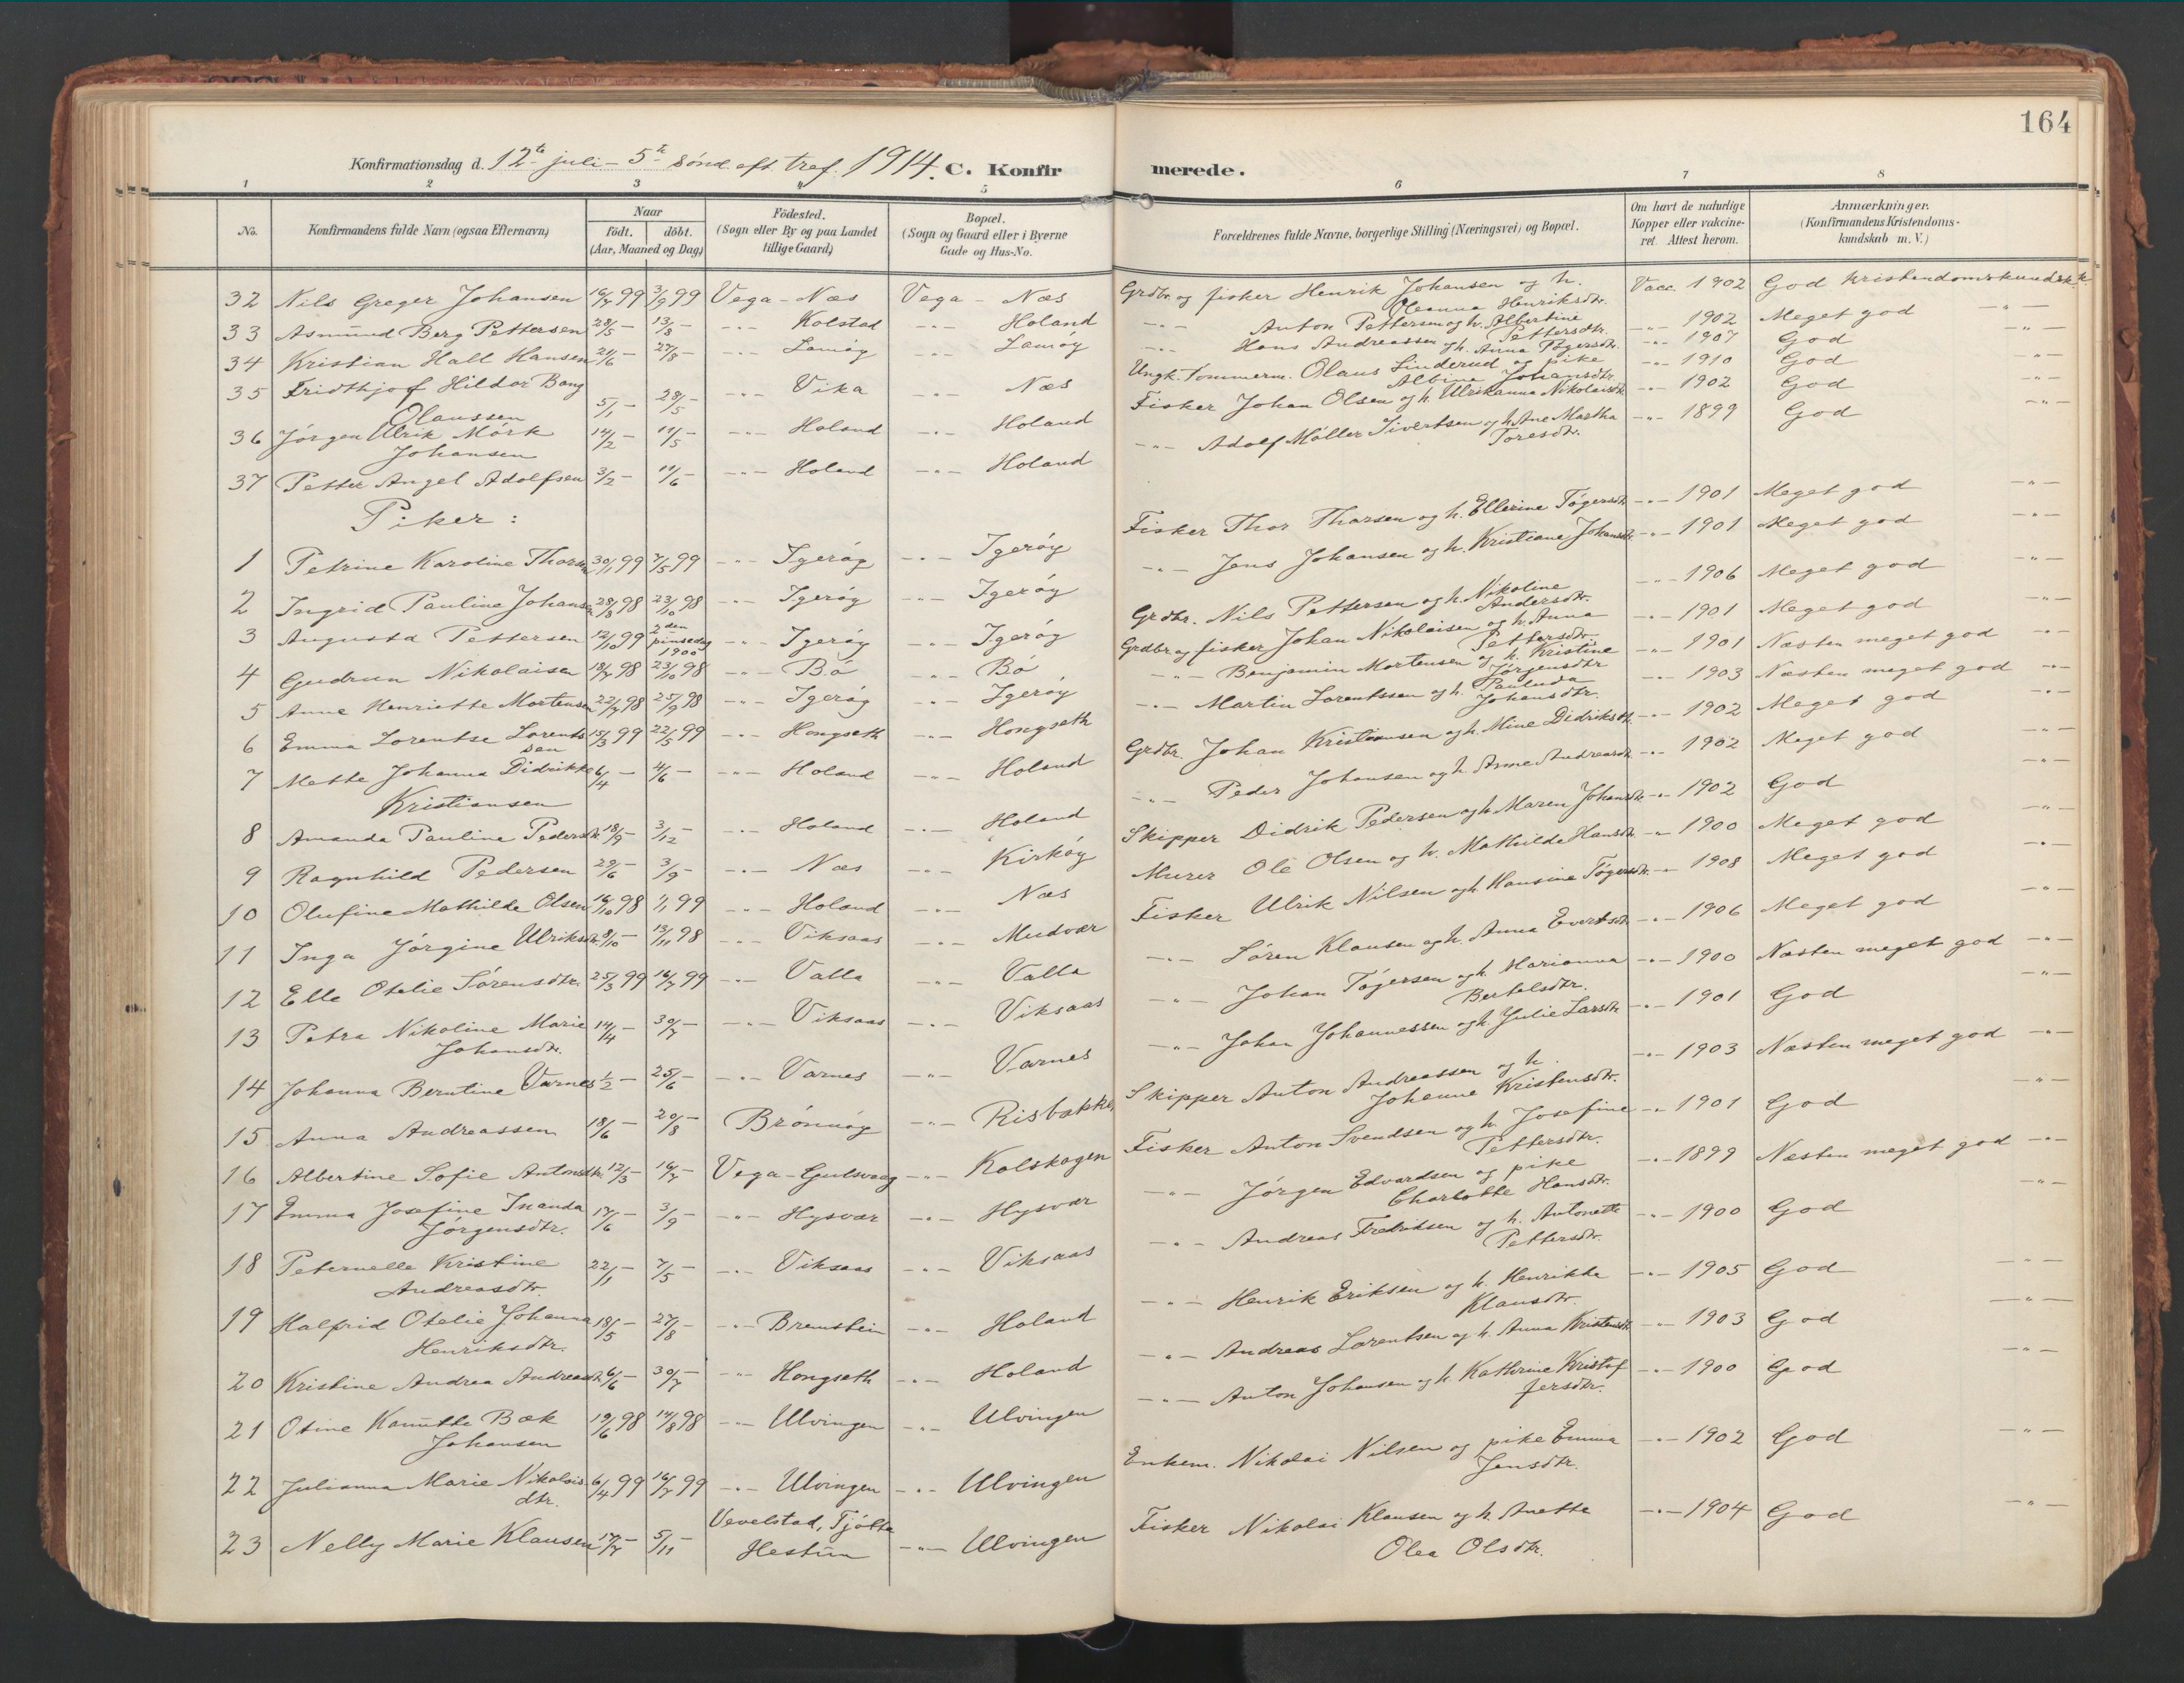 164
Konfirmationsdag d. 12te juli – 5te sønd. eft. tref. 1914. C. Konfirmerede.
1 2 3 4 5 6 7 8
No.
Konfirmandens fulde Navn (ogsaa Efternavn)
Naar
Födt. döbt.
(Aar, Maaned og Dag)
Födested.
(Sogn eller By og paa Landet
tillige Gaard)
Bopæl.
(Sogn og Gaard eller i Byerne
Gade og Hus-No.
Forældrenes fulde Navne, borgerlige Stilling (Næringsvei) og Bopæl.
Om havt de naturlige
Kopper eller vakcine-
ret. Attest herom.
Anmærkninger.
(Konfirmandens Kristendoms-
kundskab m. V.)
32 Nils Greger Johansen 16/7 99 3/9 99 Vega – Næs Vega – Næs Grdbr. og fisker Henrik Johansen og h. Vacc. 1902 God Kristendomskundsk.
Oleanna Henriksdtr.
33 Asmund Berg Pettersen 28/5 – 13/8 – –"– Kolstad –"– Holand –"– Anton Pettersen og h. Albertine –"– 1902 Meget god –"–
Pettersdtr.
34 Kristian Hall Hansen 21/6 – 27/8 – –"– Lamøy –"– Lamøy –"– Hans Andreassen og h. Anna Tøgersdtr. –"– 1907 God –"–
35 Fridthjof Hildor Bang –"– Vika –"– Næs Ungk. Tømmerm. Olaus Linderud og pike –"– 1910 God –"–
Olaussen 5/1 – 28/5 – Albine Johansdtr.
36 Jørgen Ulrik Mørk 14/2 – 11/5 – –"– Holand –"– Holand Fisker Johan Olsen og h. Ulrikanna Nikolaisdtr. –"– 1902 God –"–
Johansen
37 Petter Angel Adolfsen 3/2 – 11/6 – –"– Holand –"– Holand –"– Adolf Møller Sivertsen og h. Ane Martha –"– 1899 God –"–
Toresdtr.
Piker:
1 Petrine Karoline Thorsen 30/1 99 7/5 99 –"– Igerøy –"– Igerøy Fisker Thor Thorsen og h. Ellerine Tøgersdtr. –"– 1901 Meget god –"–
2 Ingrid Pauline Johansen 28/8 98 23/10 98 –"– Igerøy –"– Igerøy –"– Jens Johansen og h. Kristiane Johansdtr. –"– 1901 Meget god –"–
3 Augusta Pettersen 12/10 99 2den pinsedag 1900 –"– Igerøy –"– Igerøy Grdbr. Nils Pettersen og h. Nikoline –"– 1906 Meget god –"–
Andersdtr.
4 Gudrun Nikolaisen 18/7 98 23/10 98 –"– Bø –"– Bø Grdbr. og fisker Johan Nikolaisen og h. Anna –"– 1901 Meget god –"–
Pettersdtr.
5 Anne Henriette Mortensen 22/7 98 25/9 98 –"– Igerøy –"– Igerøy –"– Benjamin Mortensen og h. Kristine –"– 1901 Næsten meget god –"–
Jørgensdtr
6 Emma Lorentse Lorents 15/3 99 22/5 99 –"– Hongseth –"– Hongseth –"– Martin Lorentssen og h. Paulina –"– 1903 Næsten meget god –"–
sen Johansdtr.
7 Mette Johanna Didrikke 6/4 – 4/6 – –"– Holand –"– Holand Grdbr. Johan Kristiansen og h. Mine Didriksdtr. –"– 1902 Meget god –"–
Kristiansen
8 Amanda Pauline Pedersdtr 18/9 – 3/12 – –"– Holand –"– Holand –"– Peder Johansen og h. Anne Andreasdtr. –"– 1902 Meget god –"–
9 Ragnhild Pedersen 29/6 – 3/9 – –"– Næs –"– Kirkøy Skipper Didrik Pedersen og h. Maren Johansdtr. –"– 1902 God –"–
10 Olufine Mathilde Olsen 16/10 98 1/1 99 –"– Holand –"– Næs Murer Ole Olsen og h. Mathilde Hansdtr. –"– 1900 Meget god –"–
11 Inga Jørgine Ulriksdtr. 8/10 – 13/11 98 –"– Viksaas –"– Mudvær Fisker Ulrik Nilsen og h. Hansine Tøgersdtr. –"– 1908 Meget god –"–
12 Elle Otelie Sørensdtr. 25/3 99 16/7 99 –"– Valla –"– Valla –"– Søren Klausen og h. Anna Evertsdtr. –"– 1906 Meget god –"–
13 Petra Nikoline Marie 14/4 – 30/7 – –"– Viksaas –"– Viksaas –"– Johan Tøgersen og h. Marianna –"– 1900 Næsten meget god –"–
Johansdtr. Bertelsdtr.
14 Johanna Berntine Varnes 1/2 – 25/6 – –"– Varnes –"– Varnes –"– Johan Johannessen og h. Julie Larsdtr. –"– 1901 God –"–
15 Anna Andreassen 18/6 – 20/8 – Brønnøy –"– Risbakke Skipper Anton Andreassen og h. –"– 1903 Næsten meget god –"–
Johanne Kristensdtr.
16 Albertine Sofie Antonsdtr. 12/3 – 16/7 – Vega – Gulsvaag –"– Kolskogen Fisker Anton Svendsen og h. Josefine –"– 1901 God –"–
Pettersdtr.
17 Emma Josefine Inanda 17/6 – 3/9 – –"– Hysvær –"– Hysvær –"– Jørgen Edvardsen og pike –"– 1899 Næsten meget god –"–
Jørgensdtr. Charlotte Hansdtr.
18 Peternelle Kristine 22/1 – 7/5 – –"– Viksaas –"– Viksaas –"– Andreas Fredriksen og h. Antonette –"– 1900 God –"–
Andreasdtr. Pettersdtr.
19 Halfrid Otelie Johanna 18/5 – 27/8 – –"– Bremstein –"– Holand –"– Henrik Eriksen og h. Henrikke –"– 1905 God –"–
Henriksdtr. Klausdtr.
20 Kristine Andrea Andreasdtr 6/6 – 30/7 – –"– Hongseth –"– Holand –"– Andreas Lorentsen og h. Anna Kristensdtr. –"– 1903 God –"–
21 Otine Kanutte Bæk 19/6 98 14/8 98 –"– Ulvingen –"– Ulvingen –"– Anton Johansen og h. Kathrine Kristof –"– 1900 God –"–
Johansen fersdtr.
22 Julianna Marie Nikolais 6/4 99 16/7 99 –"– Ulvingen –"– Ulvingen Enkem. Nikolai Nilsen og pike Emma –"– 1902 God –"–
dtr. Jensdtr.
23 Nelly Marie Klausen 17/7 – 5/11 – Vevelstad, Tjøtta –"– Ulvingen Fisker Nikolai Klausen og h. Anette –"– 1904 God –"–
Hestun Olea Olsdtr.